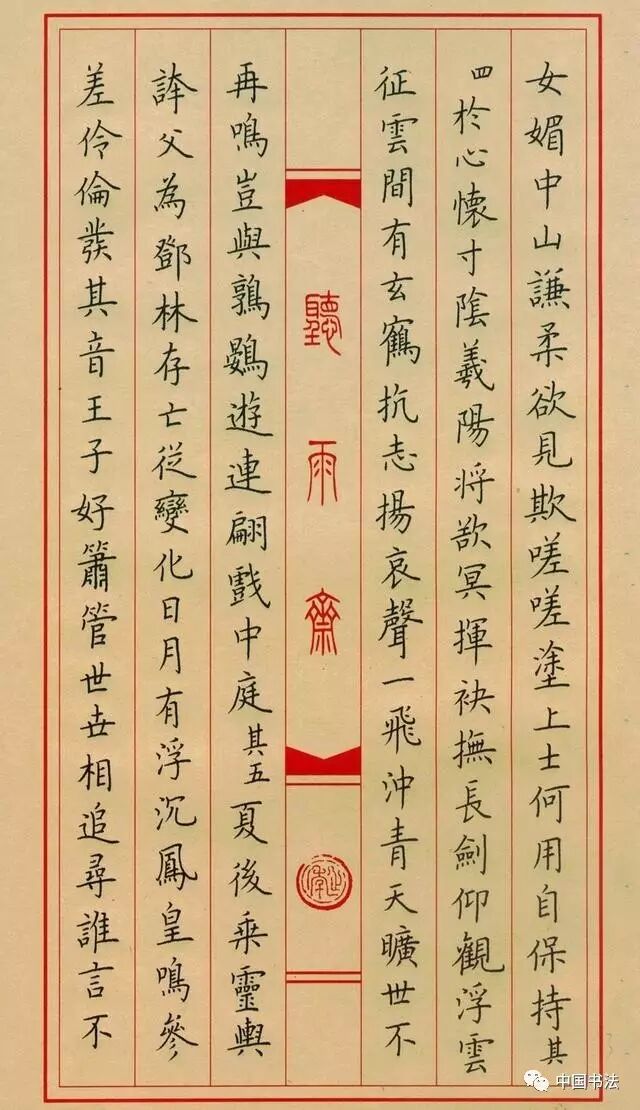 女媚中山謙柔欲見欺嗟嗟塗上士何用自保持其
四於心懷寸陰羲陽將欲冥揮袂撫長劍仰觀浮雲
征雲間有玄鶴抗志揚哀聲一飛沖青天曠世不
聽雨齋
再鳴豈與鶉鷃遊連翩戲中庭其五夏後乘靈輿
誇父為鄧林存亡從變化日月有浮沉鳳皇鳴參
差伶倫發其音王子好簫管世世相追尋誰言不
中国书法